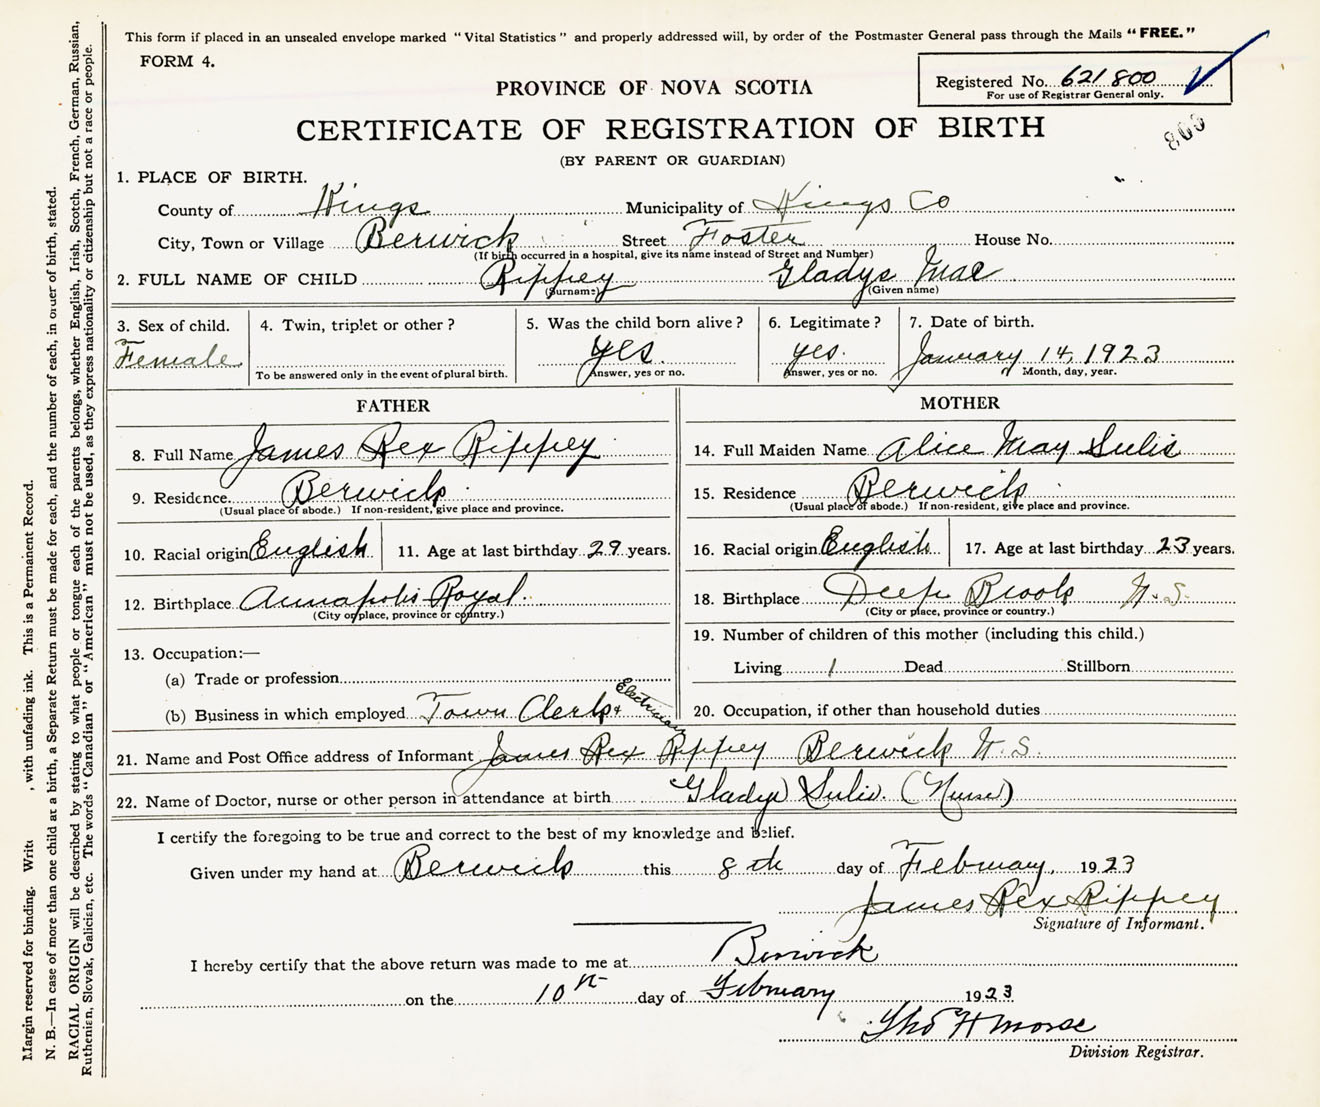 This form if placed in an unsealed envelope marked "Vital Statistics" and properly addressed will, by order of the Postmaster General pass through the Mails "FREE."
FORM 4.
Registered No. 621800
For use of Registrar General only.
PROVINCE OF NOVA SCOTIA
CERTIFICATE OF REGISTRATION OF BIRTH
800
(BY PARENT OR GUARDIAN)
1. PLACE OF BIRTH.
County of Kings Municipality of Kings Co
City, Town or Village Berwick Street Foster House No.
(If birth occurred in a hospital, give its name instead of Street and Number)
2. FULL NAME OF CHILD Rippey Gladys Mae
(Surname) (Given name)
3. Sex of child. 4. Twin, triplet or other? 5. Was the child born alive? 6. Legitimate? 7. Date of birth.
Female yes. yes. January 14, 1923
To be answered only in the event of plural birth. Answer, yes or no. Answer, yes or no. Month, day, year.
FATHER MOTHER
8. Full Name James Rex Rippey 14. Full Maiden Name Alice May Sulis
9. Residence. Berwick 15. Residence Berwick
(Usual place of abode.) If non-resident, give place and province. (Usual place of abode.) If non-resident, give place and province.
10. Racial origin English 11. Age at last birthday 29 years. 16. Racial origin English 17. Age at last birthday 23 years.
12. Birthplace Annapolis Royal. 18. Birthplace Deep Brook N.S.
(City or place, province or country.) (City or place, province or country.)
13. Occupation:— 19. Number of children of this mother (including this child.)
(a) Trade or profession Living 1 Dead Stillborn
(b) Business in which employed Town Clerk + Electrician 20. Occupation, if other than household duties
21. Name and Post Office address of Informant James Rex Rippey Berwick N.S.
22. Name of Doctor, nurse or other person in attendance at birth Gladys Sulis. (Nurse)
I certify the foregoing to be true and correct to the best of my knowledge and belief.
Given under my hand at Berwick this 8th day of February, 1923
James Rex Rippey
Signature of Informant.
I hereby certify that the above return was made to me at Berwick
on the 10th day of February 1923
Thos H Morse
Division Registrar.
Margin reserved for binding. Write , with unfading ink. This is a Permanent Record.
N. B.—In case of more than one child at a birth, a Separate Return must be made for each, and the number of each, in order of birth, stated.
RACIAL ORIGIN will be described by stating to what people or tongue each of the parents belongs, whether English, Irish, Scotch, French, German, Russian,
Ruthenien, Slovak, Galician, etc. The words "Canadian" or "American" must not be used, as they express nationality or citizenship but not a race or people.